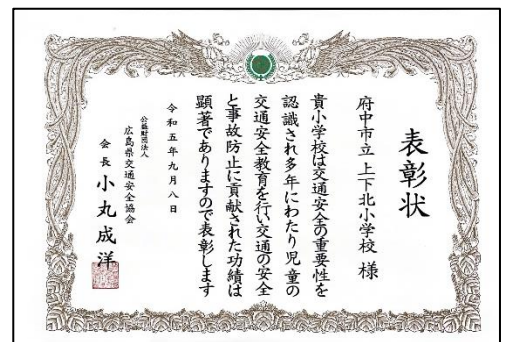 表彰状
府中市立上下北小学校 様
貴小学校は交通安全の重要性を
認識され多年にわたり児童の
交通安全教育を行い交通の安全
と事故防止に貢献された功績は
顕著でありますので表彰します
令和五年九月八日
公益財団法人
広島県交通安全協会
会長 小丸成洋